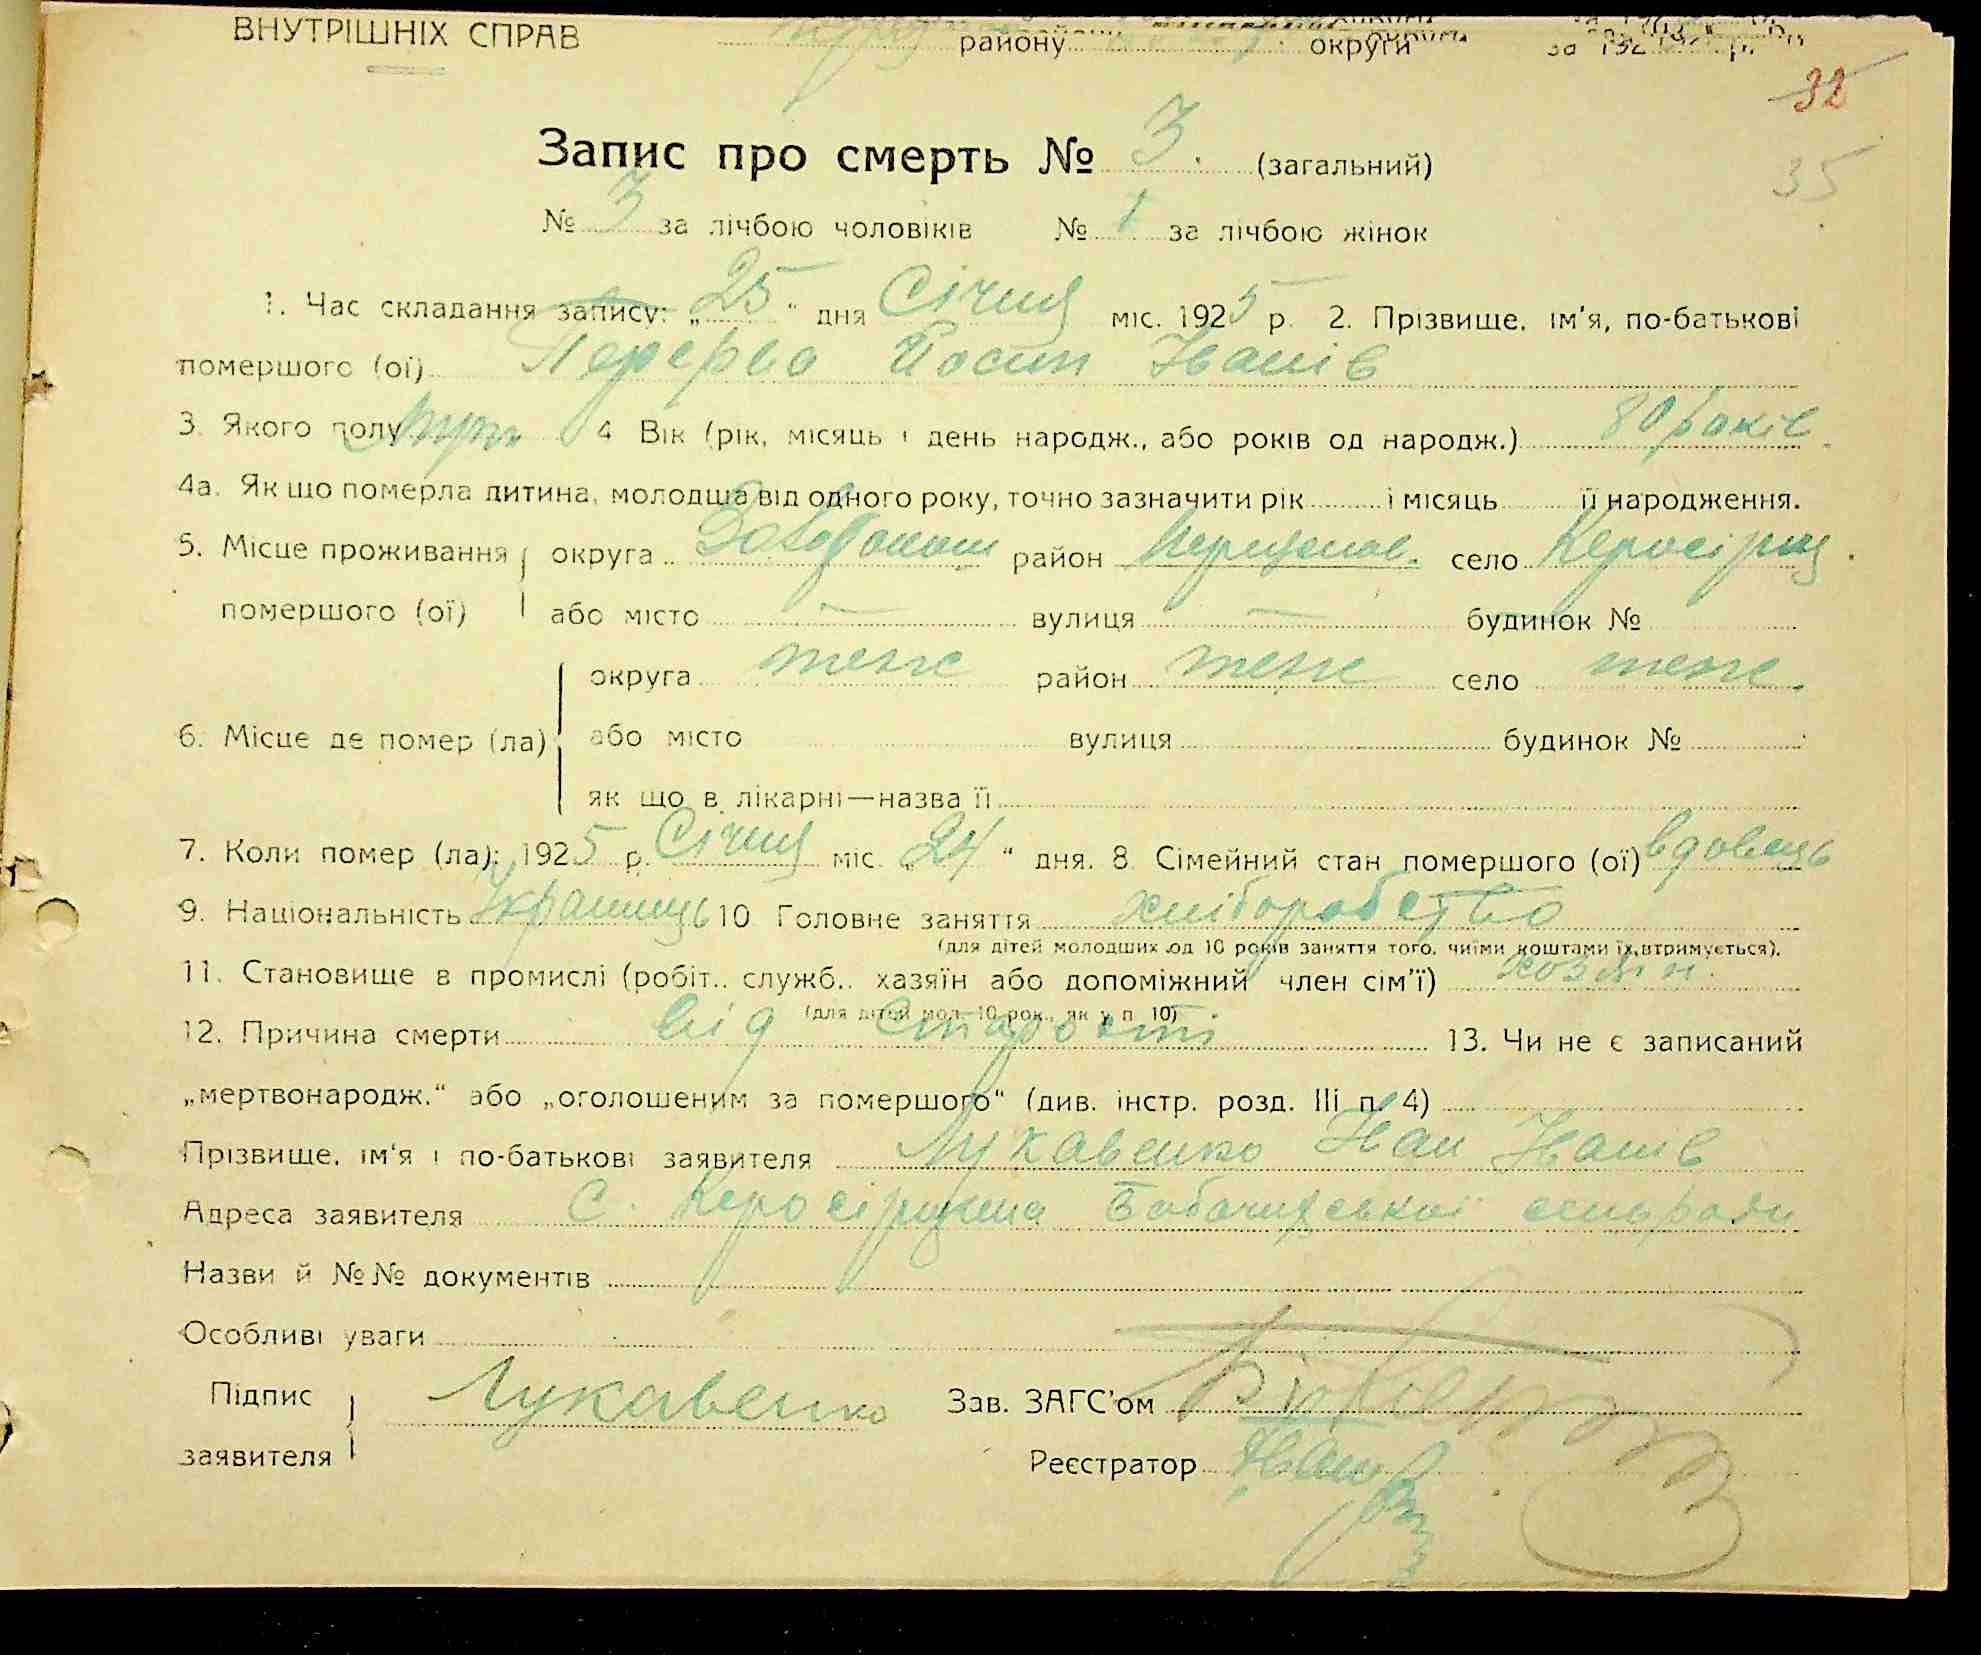 ВНУТРІШНІХ СПРАВ району округи за 192 р.
32
Запис про смерть № 3. (загальний)
35
№ 3 за лічбою чоловіків № 1 за лічбою жінок
1. Час складання запису: „25“ дня Січня міс. 1925 р. 2. Прізвище, ім'я, по-батькові
помершого (ої) Перерва Йосип Іванів
3. Якого полу 4 Вік (рік, місяць і день народж., або років од народж.) 80 років
4а. Як що померла дитина, молодша від одного року, точно зазначити рік і місяць її народження.
5. Місце проживання округа район село
помершого (ої) або місто — вулиця — будинок №
округа теж район теж село теж
6. Місце де помер (ла) або місто вулиця будинок №
як що в лікарні—назва її
7. Коли помер (ла): 1925 р. Січня міс. „24“ дня. 8. Сімейний стан помершого (ої) вдовець
9. Національність Українець 10 Головне заняття хліборобство
(для дітей молодших од 10 років заняття того, чиїми коштами їх втримується).
11. Становище в промислі (робіт., служб., хазяїн або допоміжний член сім'ї) хозяїн.
(для дітей мол. 10 рок., як у п. 10)
12. Причина смерти від старости 13. Чи не є записаний
„мертвонародж.“ або „оголошеним за помершого“ (див. інстр. розд. III п. 4)
Прізвище, ім'я і по-батькові заявителя Лукавенко Іван Іванів
Адреса заявителя с. сільради
Назви й №№ документів
Особливі уваги
Підпис Лукавенко Зав. ЗАГС'ом
заявителя Реєстратор